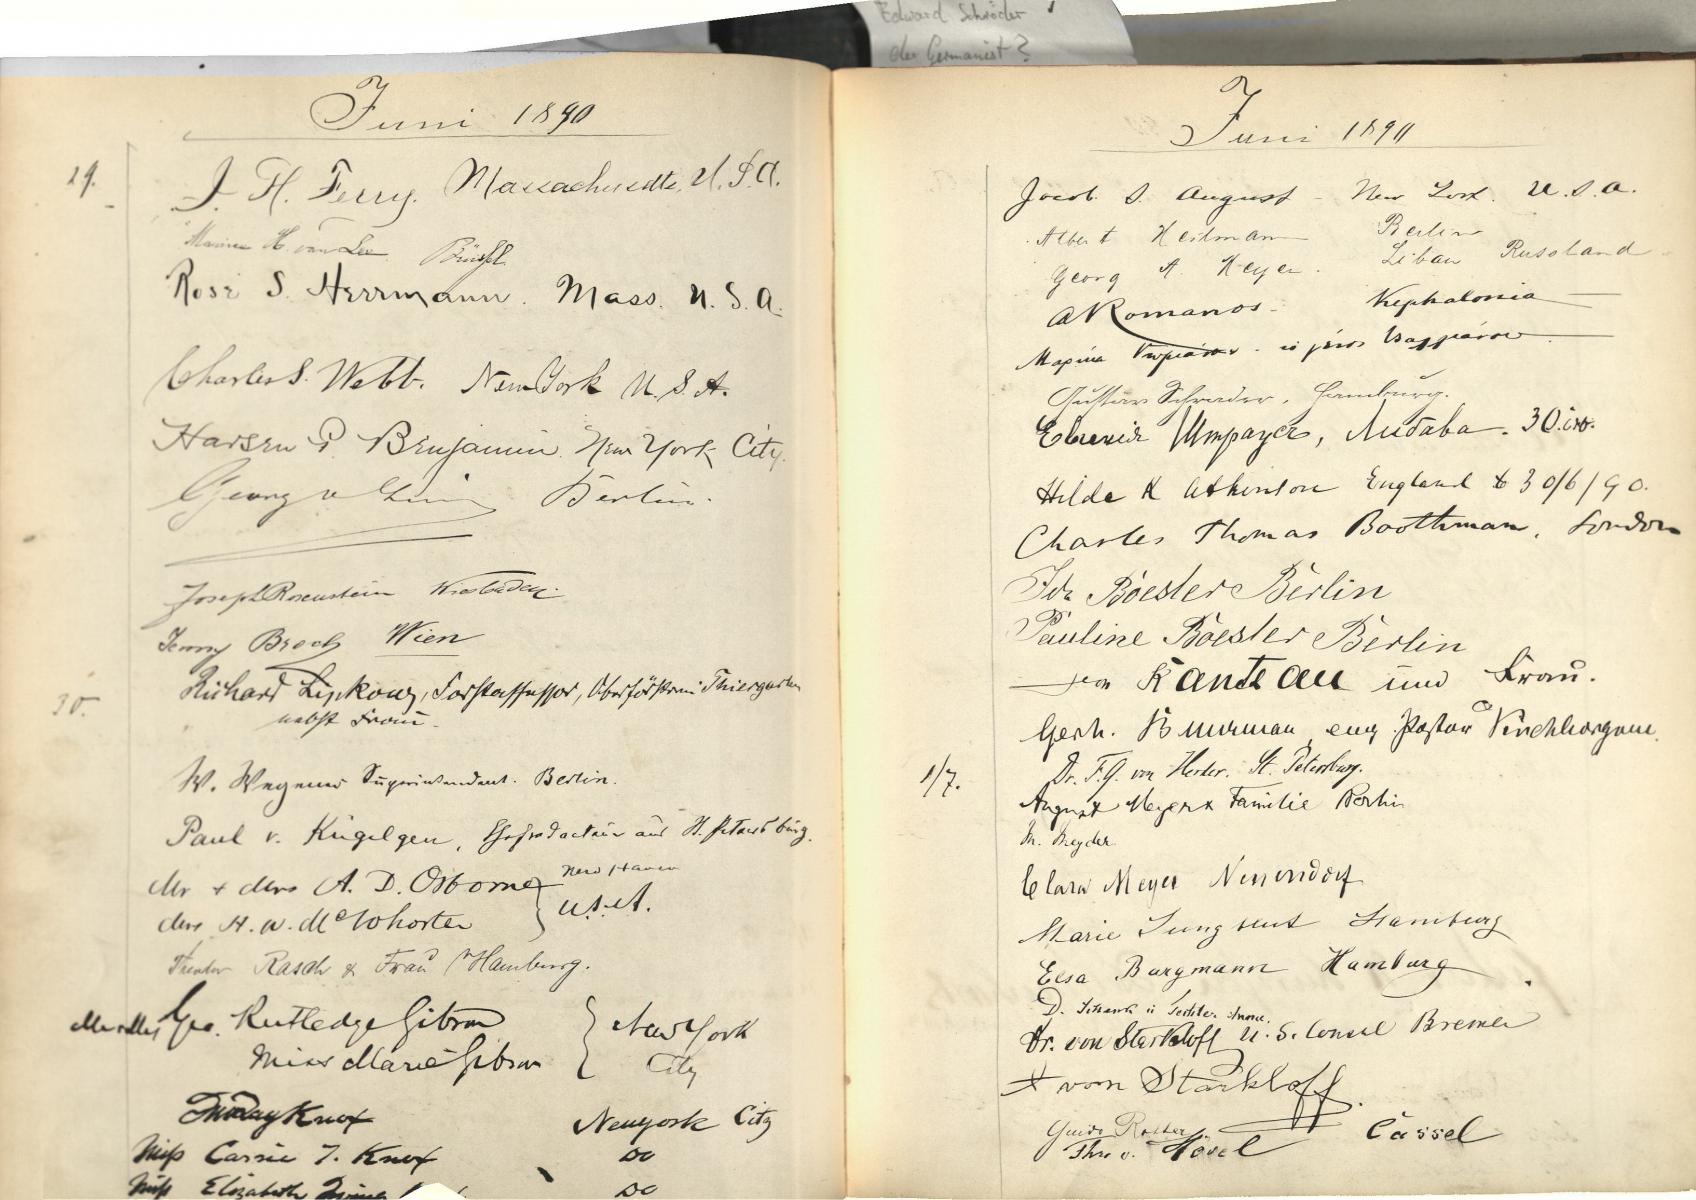 Edward Schröder
der Germanist?
Juni 1890
29.
J. H. Ferry. Massachusetts, U.S.A.
H. van Brüssel
Rose S. Herrmann. Mass. U.S.A.
Charles S. Webb. New York U.S.A.
P. Benjamin. New York City.
Georg v Berlin.
Joseph Rosenstein Wiesbaden.
Jenny Broch Wien
30.
Richard Forstassessor, Oberförsterei Thiergarten
nebst Frau.
W. Wegener Superintendent. Berlin.
Paul v. Kügelgen, Chefredacteur aus St. Petersburg.
Mr + Mrs A. D. Osborne New Haven
Mrs H. W. McWhorter U.S.A.
Theodor Rasch & Frau Hamburg.
Geo. Rutledge Gibson New York
Miss Marie Gibson City
Knox New York City
Miss Carrie J. Knox do
Miss Elizabeth do
Juni 1890
Jacob S. August - New York. U.S.A.
Albert Heilmann Berlin
Georg A. Meyer. Libau Russland
A Romanos - Kephalonia
Μαρίνα
Gustav Schrader, Hamburg.
Либава. 30
Hilda K Atkinson England 30/6/90.
Charles Thomas Boothman, London
Ida Boester Berlin
Pauline Boester Berlin
von Kantzau und Frau.
Gerh. ev. Pastor
1/7.
Dr. F. G. von Herder. St. Petersburg.
August Meyer & Familie Berlin
M. Meyder
Clara Meyer
Marie Jungbluth Hamburg
Elsa Bargmann Hamburg
D. u Tochter
Dr. von Starkloff U.S. Consul Bremen
H von Starkloff.
Guido
Thr v. Hövel Cassel